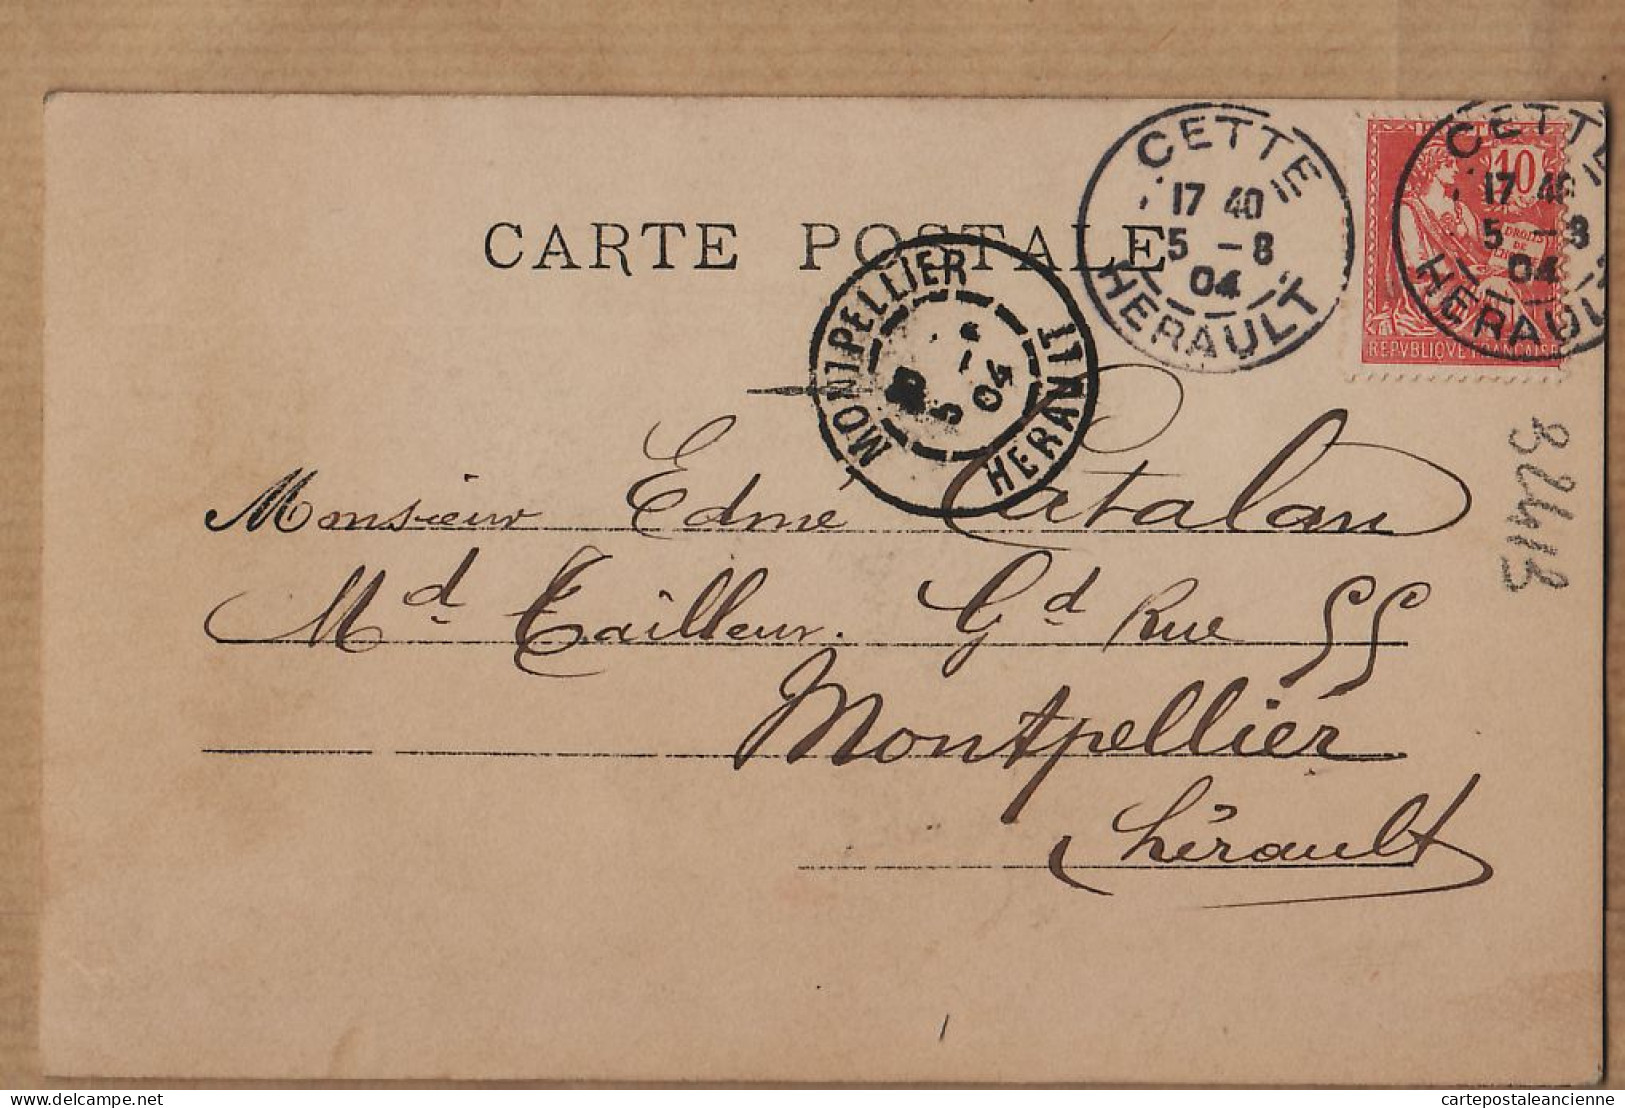 CARTE POSTALE
CETTE
17 40
5 - 8
04
HERAULT
CETTE
17 40
5 - 8
04
HERAULT
10
DROITS
DE
REPVBLIQVE FRANÇAISE
MONTPELLIER
5
04
HERAULT
Monsieur Edmé Catalan
Md Tailleur. Gd Rue 55
Montpellier
hérault
32413
www.delcampe.net
cartepostaleancienne